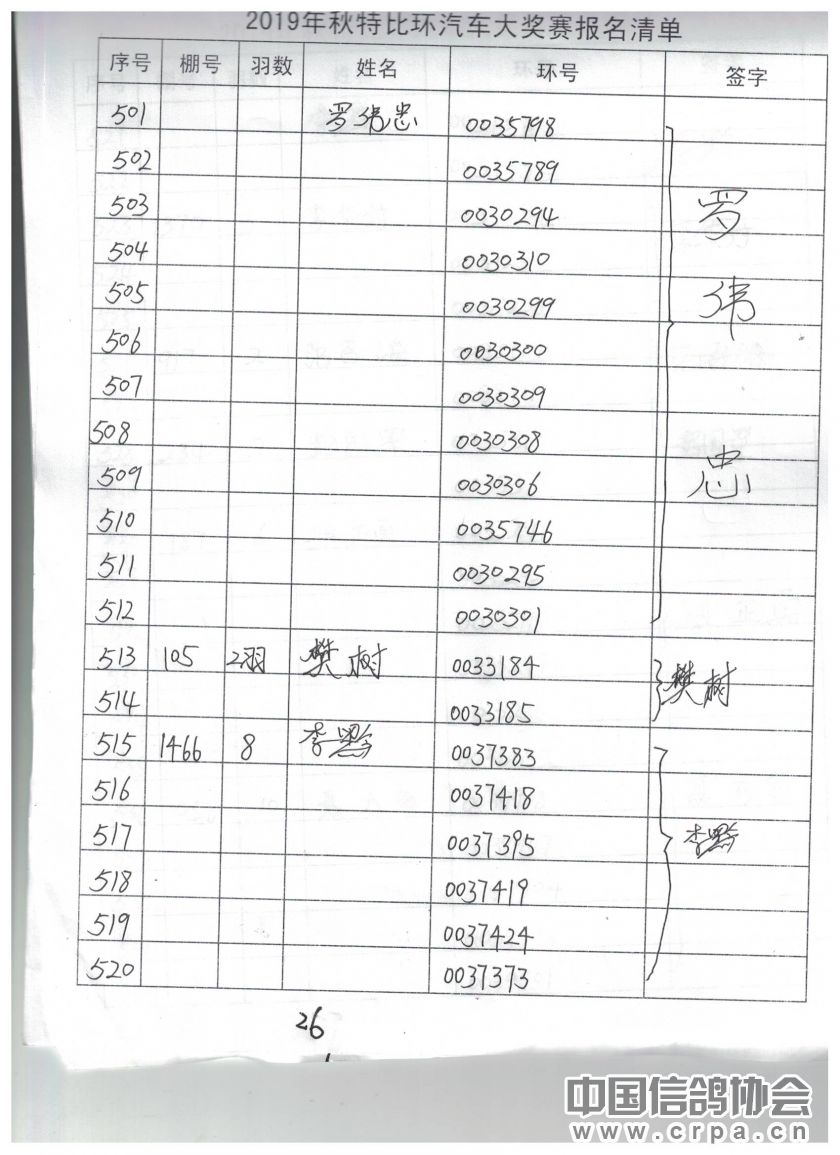 2019年秋特比环汽车大奖赛报名清单
序号 棚号 羽数 姓名 环号 签字
501 罗纬忠 0035798 罗纬忠
502 0035789
503 0030294
504 0030310
505 0030299
506 0030300
507 0030309
508 0030308
509 0030306
510 0035746
511 0030295
512 0030301
513 105 2羽 樊树 0033184 樊树
514 0033185
515 1466 8 李黔 0037383 李黔
516 0037418
517 0037395
518 0037419
519 0037424
520 0037373
26
中国信鸽协会
www.crpa.cn